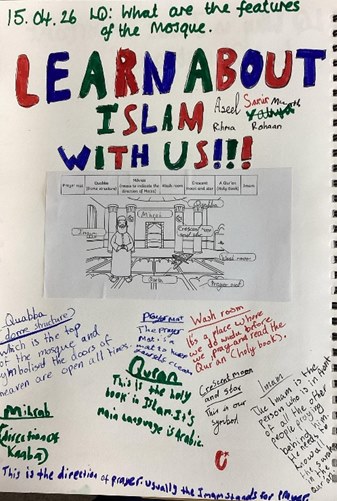 15.04.26 LO: What are the features
of the Mosque.
LEARN ABOUT
ISLAM
WITH US!!!
Aseel Samir
Rihma Rohaan
Prayer mat
Quabba
(Dome structure)
Mihrab
(niche to indicate the
direction of Mecca)
Wash room
Crescent
moon and star
A Qur'an
(Holy Book)
Imam
Quabba
Mihrab
Imam
Crescent moon
and star
Wash room
Quran
Prayer mat
Quabba
(dome structure)
which is the top
of the mosque and
symbolise the doors of
heaven are open all times.
Mihrab
(direction of
Kaaba)
This is the direction of prayer. usually the Imam stands for prayer.
Prayer mat
The prayer
Mat is a
Quran
This is the holy
book in Islam. It's
main language is Arabic.
Wash room
It's a place where
we do wudu before
we pray and read the
Qur'an (holy book).
Crescent moon
and star
This is our
symbol
Imam
The Imam is the
person who is in front
of all the other
people praying
behind him.